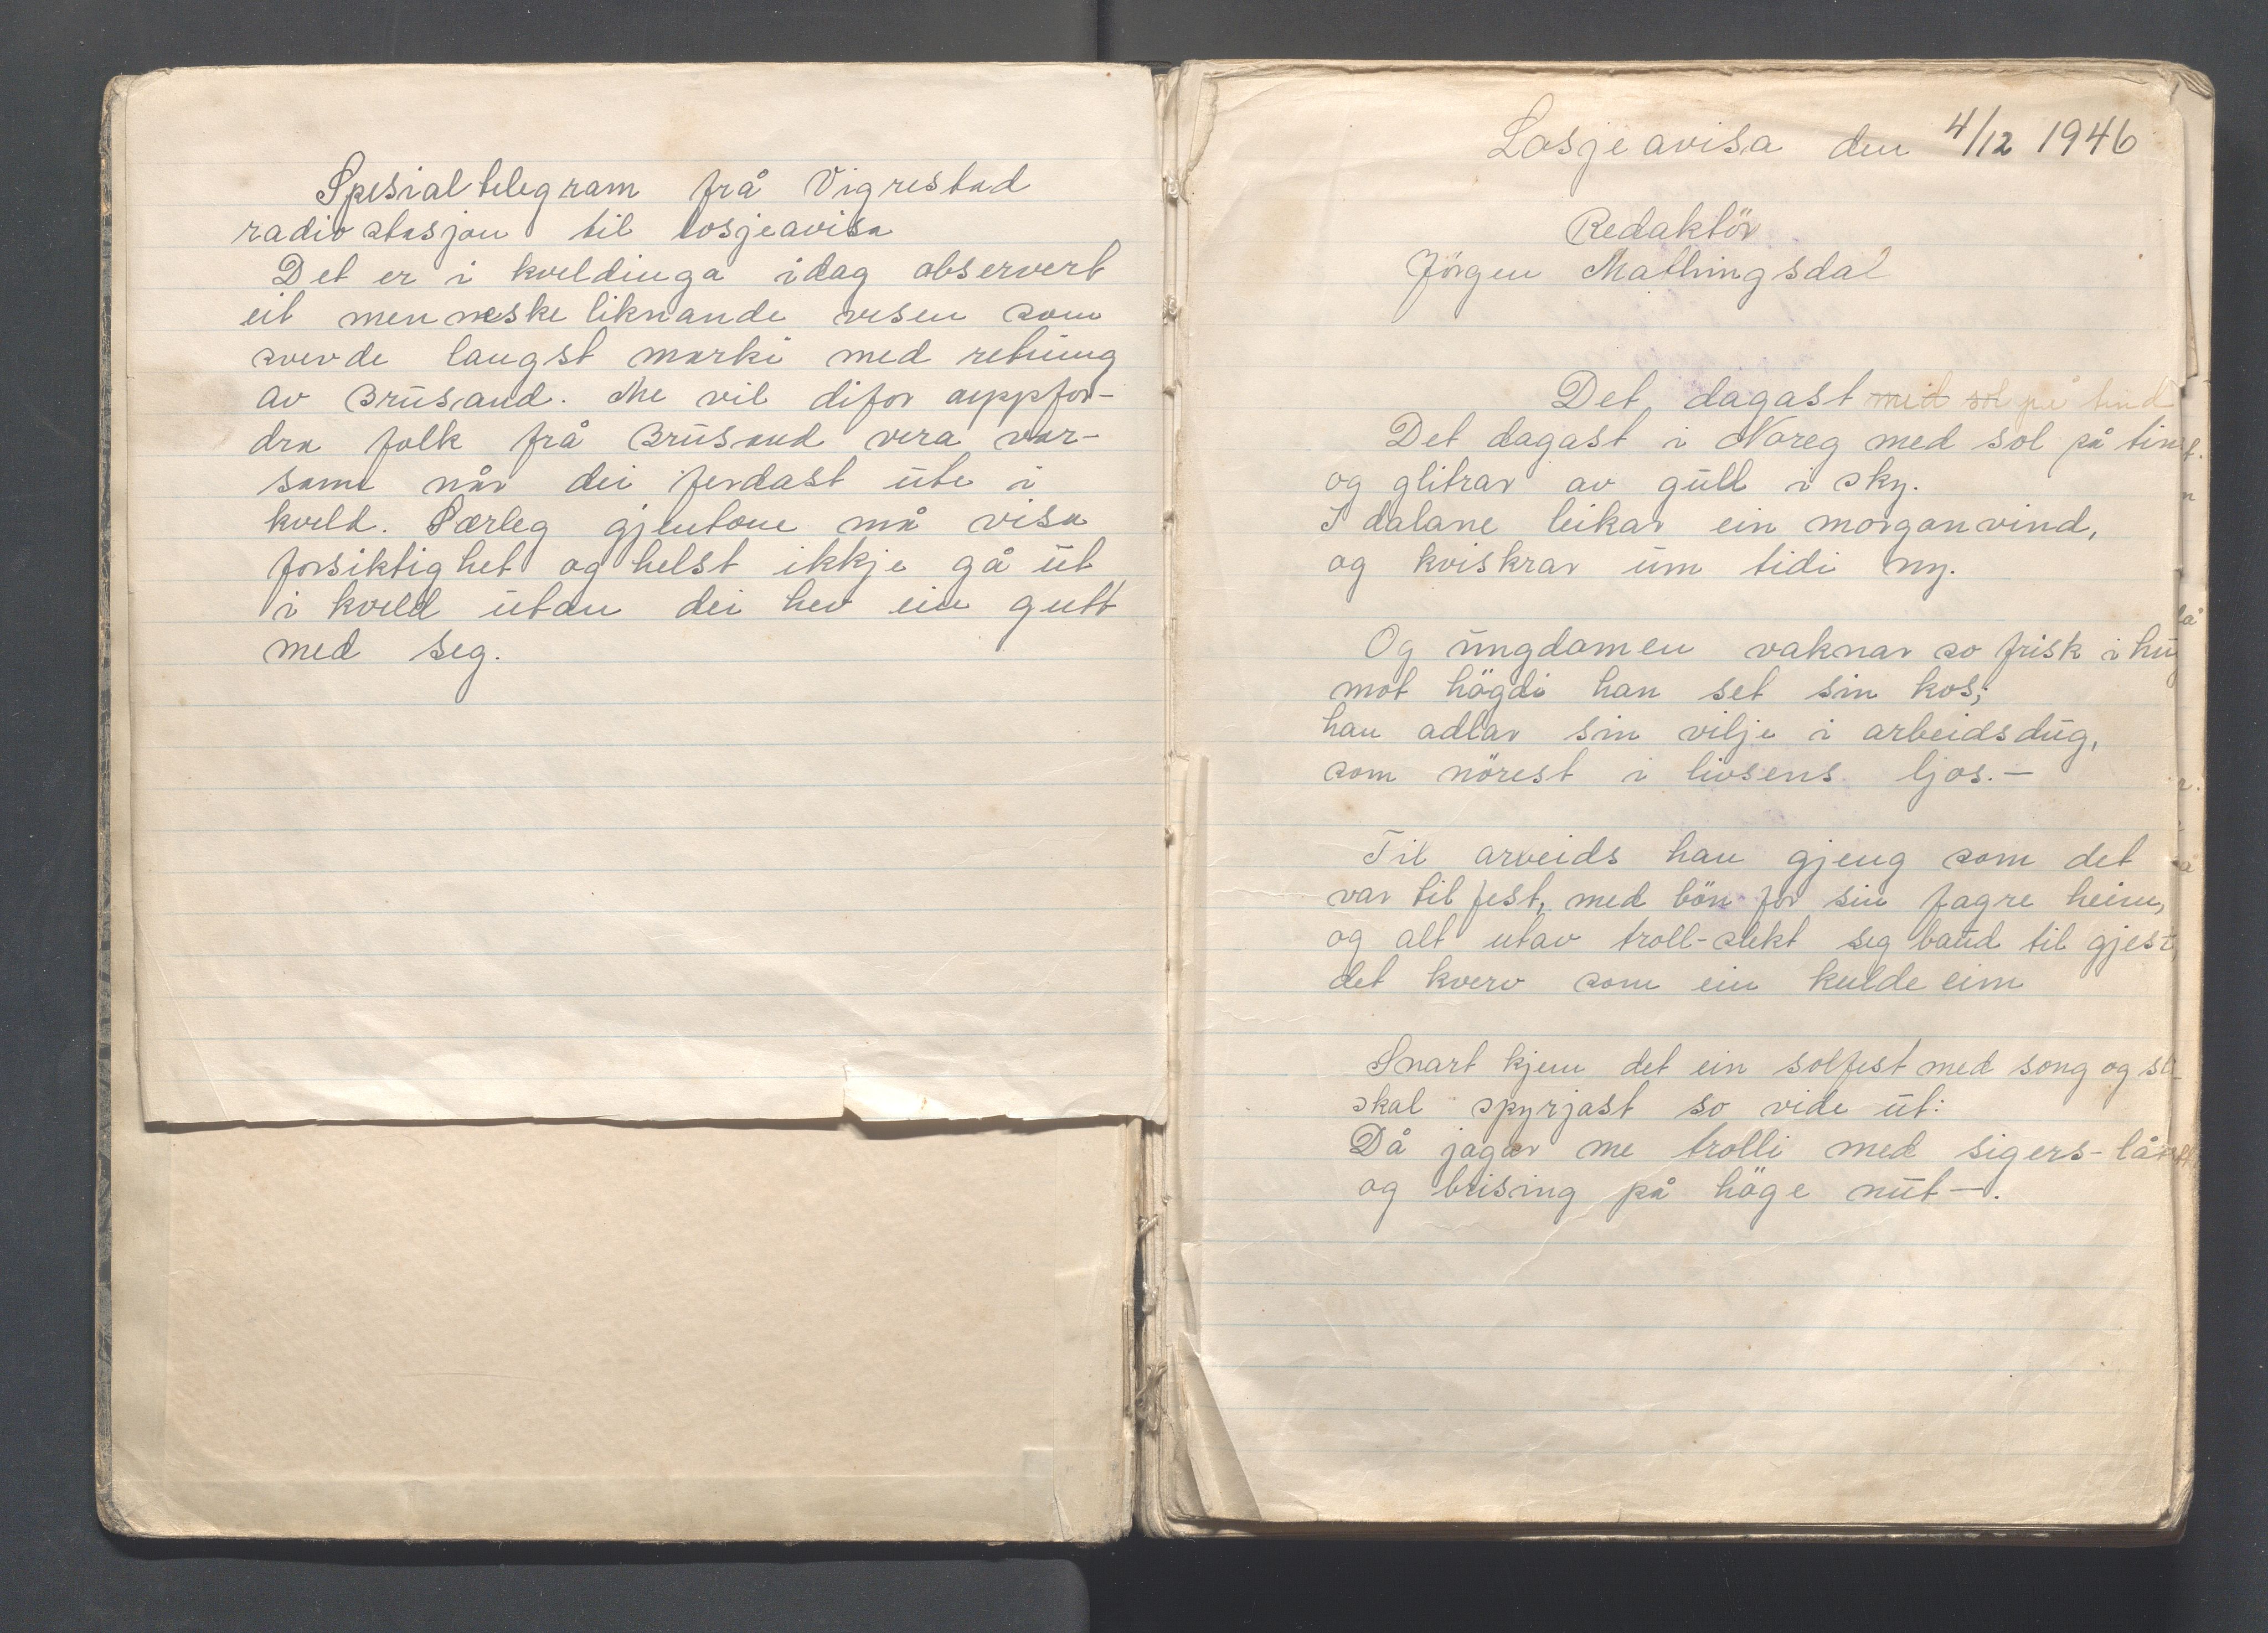 Spesialtelegram frå Vigrestad
radiostasjon til losjeavisa
Det er i kveldinga idag observert
eit menneskeliknande vesen som
svevde langst marki med retning
av Brusand. Me vil difor oppfor-
dra folk frå Brusand vera var-
same når dei ferdast ute i
kveld. Særleg gjentone må visa
forsiktighet og helst ikkje gå ut
i kveld utan dei hev ein gutt
med seg.
Losjeavisa den 4/12 1946
Redaktör
Jörgen Mathingsdal
Det dagast med sol på tind
Det dagast i Noreg med sol på tind
og glitrar av gull i sky.
I dalane leikar ein morgonvind,
og kviskrar um tidi ny.
Og ungdomen vaknar so frisk i hug
mot högdi han set sin kos;
han adlar sin vilje i arbeidsdug,
som nörest i livsens ljos.—
Til arveids han gjeng som det
var til fest, med bön for sin fagre heim,
og alt utav troll-slekt seg baud til gjest,
det kverv som ein kulde eim
Snart kjem det ein solfest med song og
skal spyrjast so vide ut:
Då jagar me trolli med sigers-lått
og brising på höge nut—.